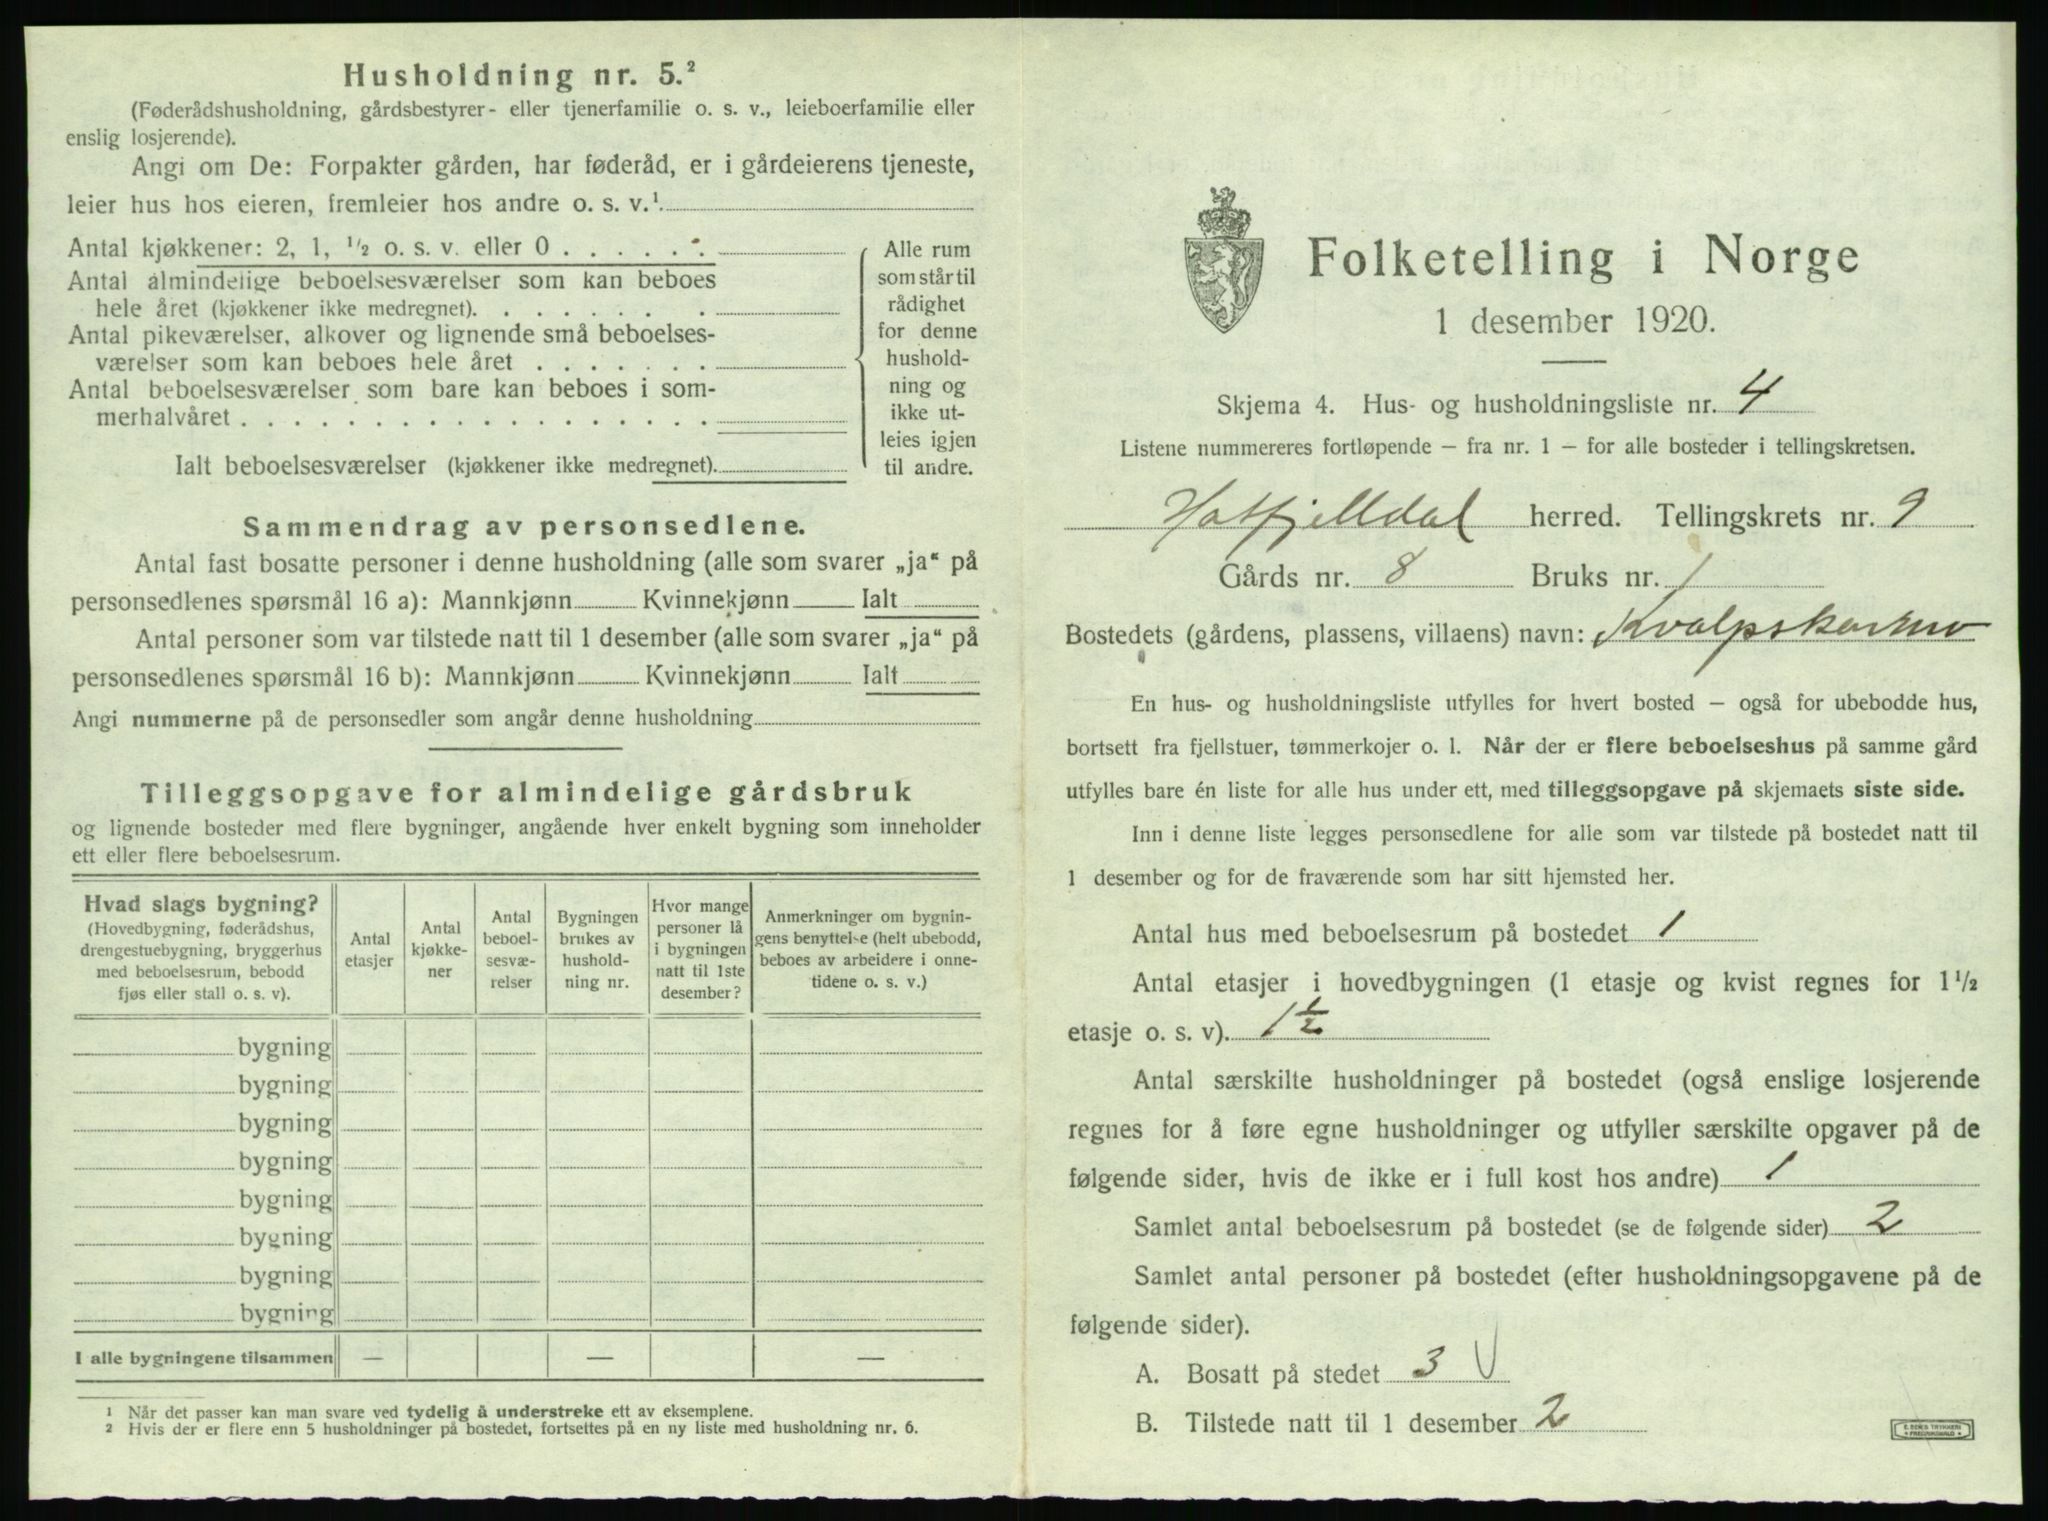 Husholdning nr. 5.²
(Føderådshusholdning, gårdsbestyrer- eller tjenerfamilie o. s. v., leieboerfamilie eller
enslig losjerende).
Angi om De: Forpakter gården, har føderåd, er i gårdeierens tjeneste,
leier hus hos eieren, fremleier hos andre o. s. v.¹
Antal kjøkkener: 2, 1, ½ o. s. v. eller 0 . . . . . .
Antal almindelige beboelsesværelser som kan beboes
hele året (kjøkkener ikke medregnet). . . . . . . .
Antal pikeværelser, alkover og lignende små beboelses-
værelser som kan beboes hele året . . . . . . .
Antal beboelsesværelser som bare kan beboes i som-
merhalvåret . . . . . . . . . . . . . . . . . .
Ialt beboelsesværelser (kjøkkener ikke medregnet).
Alle rum
som står til
rådighet
for denne
hushold-
ning og
ikke ut-
leies igjen
til andre.
Sammendrag av personsedlene.
Antal fast bosatte personer i denne husholdning (alle som svarer „ja“ på
personsedlenes spørsmål 16 a): Mannkjønn Kvinnekjønn Ialt
Antal personer som var tilstede natt til 1 desember (alle som svarer „ja“ på
personsedlenes spørsmål 16 b): Mannkjønn Kvinnekjønn Ialt
Angi nummerne på de personsedler som angår denne husholdning
Tilleggsopgave for almindelige gårdsbruk
og lignende bosteder med flere bygninger, angående hver enkelt bygning som inneholder
ett eller flere beboelsesrum.
Hvad slags bygning?
(Hovedbygning, føderådshus,
drengestuebygning, bryggerhus
med beboelsesrum, bebodd
fjøs eller stall o. s. v).
Antal
etasjer
Antal
kjøkke-
ner
Antal
beboel-
sesvæ-
relser
Bygningen
brukes av
hushold-
ning nr.
Hvor mange
personer lå
i bygningen
natt til 1ste
desember?
Anmerkninger om bygnin-
gens benyttelse (helt ubebodd,
beboes av arbeidere i onne-
tidene o. s. v.)
bygning
bygning
bygning
bygning
bygning
bygning
bygning
bygning
I alle bygningene tilsammen — — —
¹ Når det passer kan man svare ved tydelig å understreke ett av eksemplene.
² Hvis der er flere enn 5 husholdninger på bostedet, fortsettes på en ny liste med husholdning nr. 6.
Folketelling i Norge
1 desember 1920.
Skjema 4. Hus- og husholdningsliste nr. 4
Listene nummereres fortløpende — fra nr. 1 — for alle bosteder i tellingskretsen.
Hatfjelldal herred. Tellingskrets nr. 9
Gårds nr. 8 Bruks nr. 1
Bostedets (gårdens, plassens, villaens) navn:
En hus- og husholdningsliste utfylles for hvert bosted — også for ubebodde hus,
bortsett fra fjellstuer, tømmerkojer o. l. Når der er flere beboelseshus på samme gård
utfylles bare én liste for alle hus under ett, med tilleggsopgave på skjemaets siste side.
Inn i denne liste legges personsedlene for alle som var tilstede på bostedet natt til
1 desember og for de fraværende som har sitt hjemsted her.
Antal hus med beboelsesrum på bostedet 1
Antal etasjer i hovedbygningen (1 etasje og kvist regnes for 1½
etasje o. s. v). 1½
Antal særskilte husholdninger på bostedet (også enslige losjerende
regnes for å føre egne husholdninger og utfyller særskilte opgaver på de
følgende sider, hvis de ikke er i full kost hos andre) 1
Samlet antal beboelsesrum på bostedet (se de følgende sider) 2
Samlet antal personer på bostedet (efter husholdningsopgavene på de
følgende sider).
A. Bosatt på stedet 3 V
B. Tilstede natt til 1 desember 2